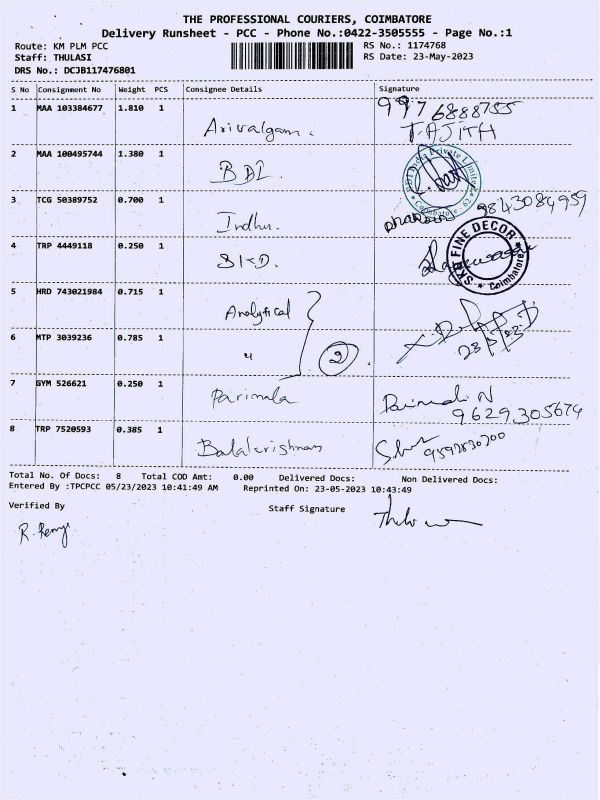 THE PROFESSIONAL COURIERS, COIMBATORE
Delivery Runsheet - PCC - Phone No.:0422-3505555 - Page No.:1
Route: KM PLM PCC RS No.: 1174768
Staff: THULASI RS Date: 23-May-2023
DRS No.: DCJB117476801
S No Consignment No Weight PCS Consignee Details Signature
1 MAA 103384677 1.810 1 Arivalgam. 9976888755
T. AJITH
2 MAA 100495744 1.380 1 BDI.
Private Limited
Coimbatore
3 TCG 50389752 0.700 1 Indhu. 9843084959
4 TRP 4449118 0.250 1 SKD.
SKD FINE DECOR
Coimbatore
5 HRD 743021984 0.715 1 Analytical
6 MTP 3039236 0.785 1 " 2
7 GYM 526621 0.250 1 Parimala N
9629305674
8 TRP 7520593 0.385 1 Balakrishnan 9597830700
Total No. Of Docs: 8 Total COD Amt: 0.00 Delivered Docs: Non Delivered Docs:
Entered By :TPCPCC 05/23/2023 10:41:49 AM Reprinted On: 23-05-2023 10:43:49
Verified By Staff Signature